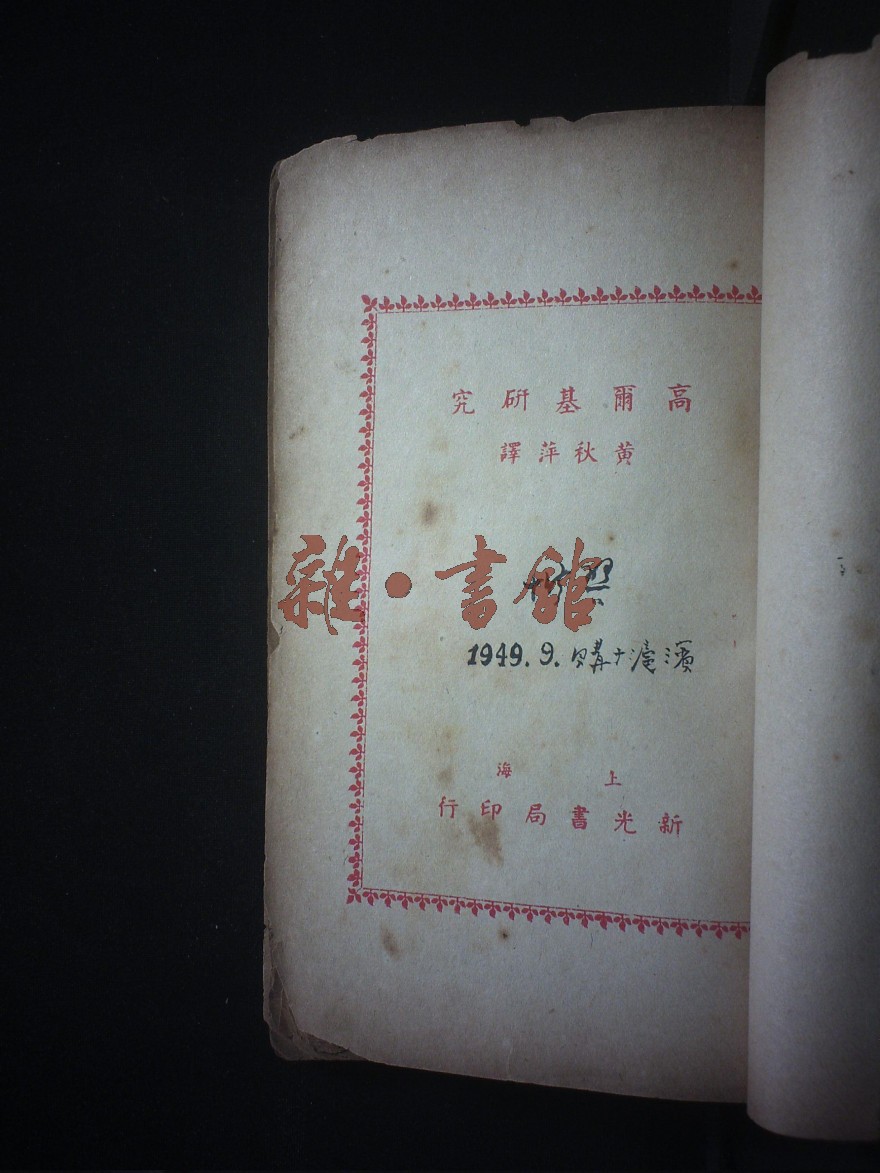 高爾基研究
黄秋萍譯
雜·書館
1949.9.購于滬濱
上海
新光書局印行